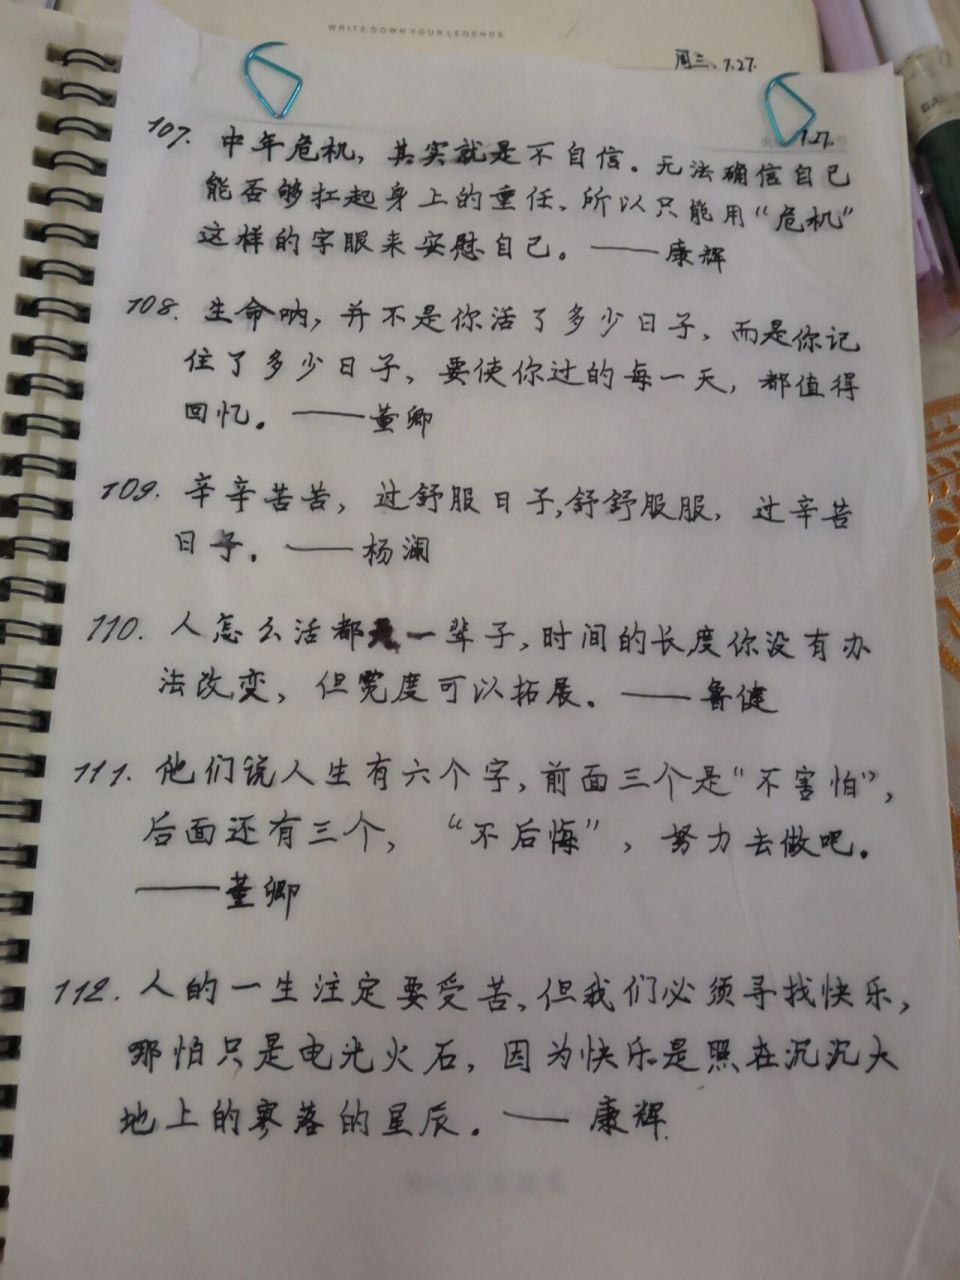 WRITE DOWN YOUR LEGENDS
周三、7.27.
7.27.
107. 中年危机，其实就是不自信。无法确信自己
能否够扛起身上的重任，所以只能用“危机”
这样的字眼来安慰自己。——康辉
108. 生命呐，并不是你活了多少日子，而是你记
住了多少日子，要使你过的每一天，都值得
回忆。——董卿
109. 辛辛苦苦，过舒服日子,舒舒服服，过辛苦
日子。——杨澜
110. 人怎么活都是一辈子，时间的长度你没有办
法改变，但宽度可以拓展。——鲁健
111. 他们说人生有六个字，前面三个是“不害怕”，
后面还有三个，“不后悔”，努力去做吧。
——董卿
112. 人的一生注定要受苦，但我们必须寻找快乐，
哪怕只是电光火石，因为快乐是照在沉沉大
地上的寥落的星辰。——康辉